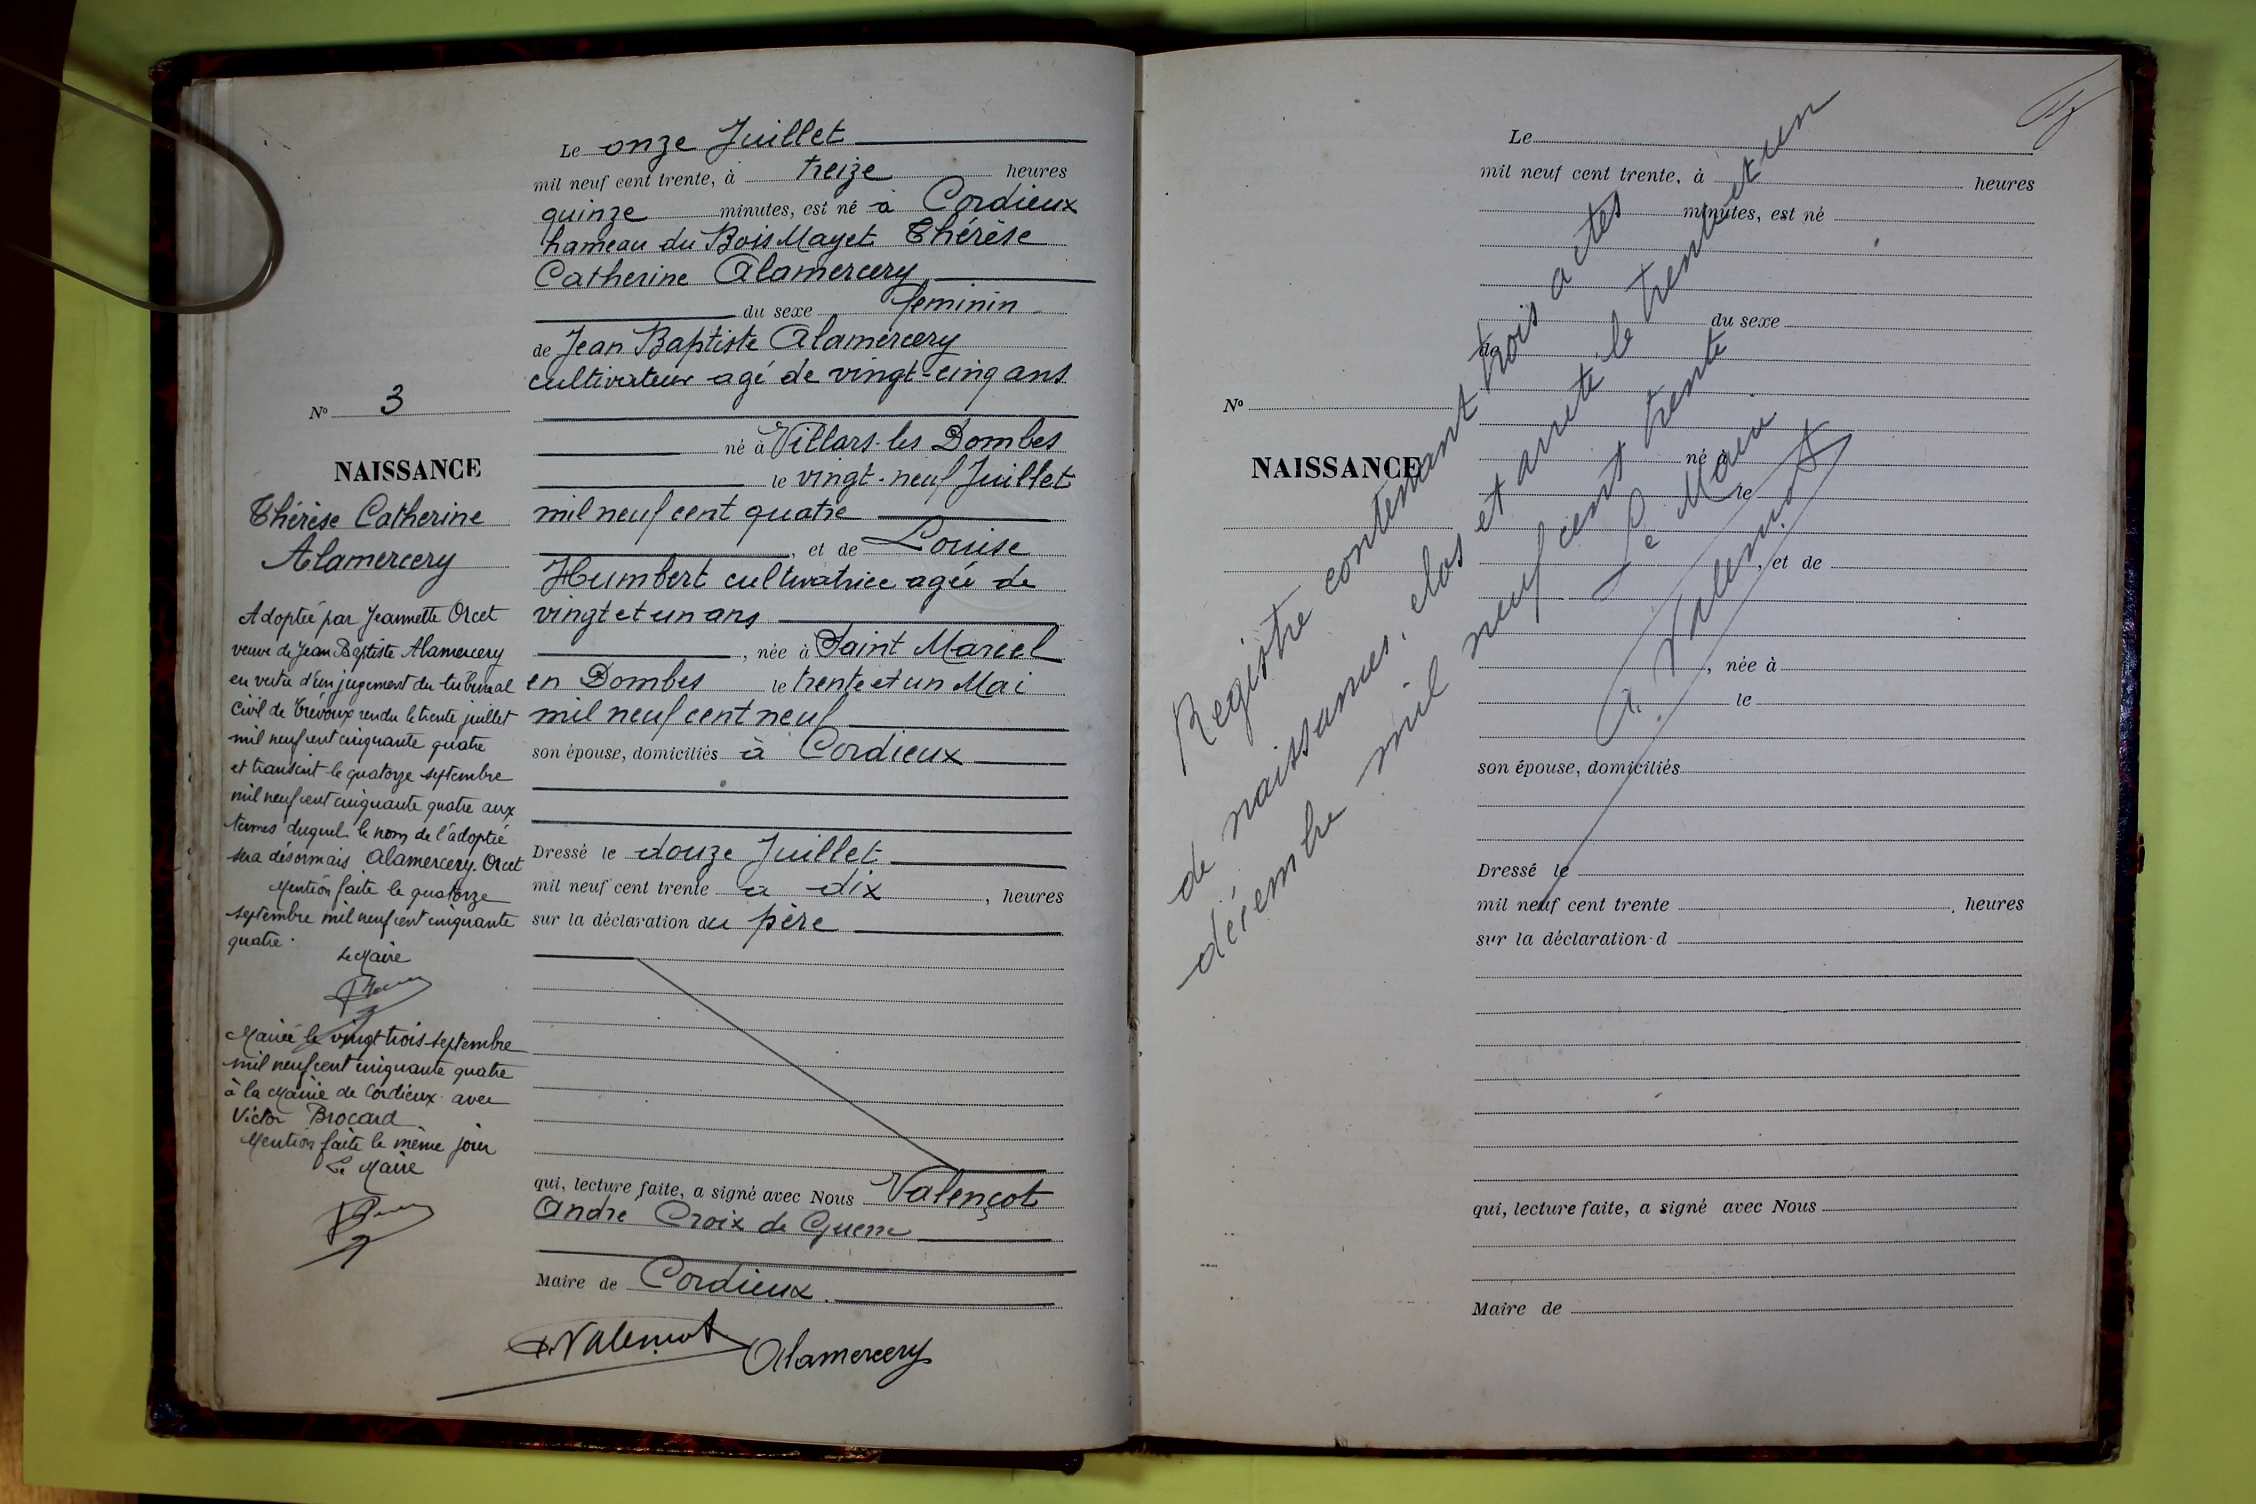 N° 3
NAISSANCE
Thérèse Catherine
Alamercery
Adoptée par Jeannette Orcet
veuve de Jean Baptiste Alamercery
en vertu d'un jugement du tribunal
civil de Trévoux rendu le trente juillet
mil neuf cent cinquante quatre
et transcrit le quatorze septembre
mil neuf cent cinquante quatre aux
termes duquel le nom de l'adoptée
sera désormais Alamercery-Orcet
Mention faite le quatorze
septembre mil neuf cent cinquante
quatre.
Le Maire
Mariée le vingt trois septembre
mil neuf cent cinquante quatre
à la Mairie de Cordieux avec
Victor Brocard
Mention faite le même jour
Le Maire
Le onze Juillet
mil neuf cent trente, à treize heures
quinze minutes, est né à Cordieux
hameau du Bois Mayet Thérèse
Catherine Alamercery
du sexe feminin
de Jean Baptiste Alamercery
cultivateur agé de vingt-cinq ans
né à Villars-les Dombes
le vingt-neuf Juillet
mil neuf cent quatre
, et de Louise
Humbert cultivatrice agée de
vingt et un ans
, née à Saint Marcel
en Dombes le trente et un Mai
mil neuf cent neuf
son épouse, domiciliés à Cordieux
Dressé le douze Juillet
mil neuf cent trente a dix , heures
sur la déclaration du père
qui, lecture faite, a signé avec Nous Valençot
André Croix de Guerre
Maire de Cordieux.
A. Valençot Alamercery
N°
NAISSANCE
Le
mil neuf cent trente, à heures
minutes, est né
du sexe
de
né à
le
, et de
, née à
le
son épouse, domiciliés
Dressé le
mil neuf cent trente , heures
sur la déclaration d
qui, lecture faite, a signé avec Nous
Maire de
Registre contenant trois actes
de naissances, clos et arrêté le trente et un
décembre mil neuf cent trente
Le Maire
A. Valençot